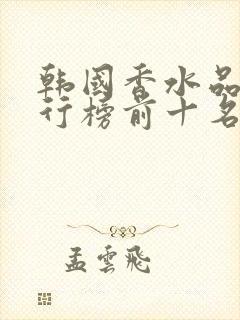 韩國香水品
行榜前十名
孟雲飛